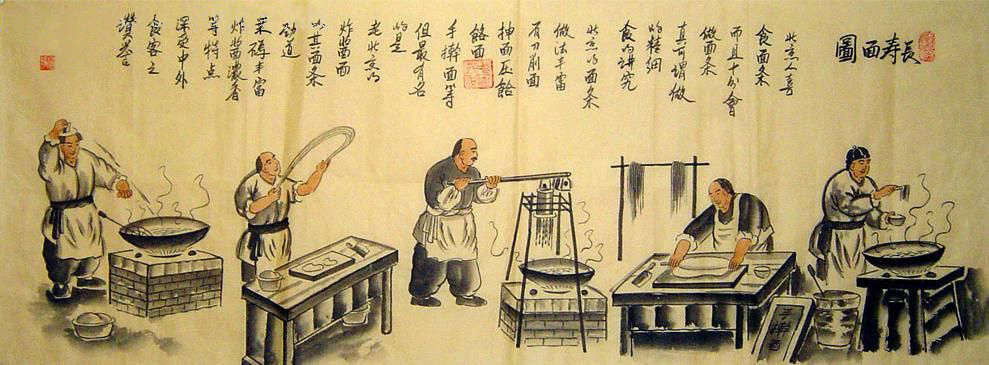 长寿面圖
北京人喜
食面条
而且十分會
做面条
直可谓做
的精细
食的讲究
北京的面条
做法丰富
有刀削面
抻面压餄
餎面
手擀面等
但最有名
的是
老北京的
炸酱面
以其面条
劲道
菜碼丰富
炸酱濃香
等特点
深受中外
食客之
讚誉
手擀面